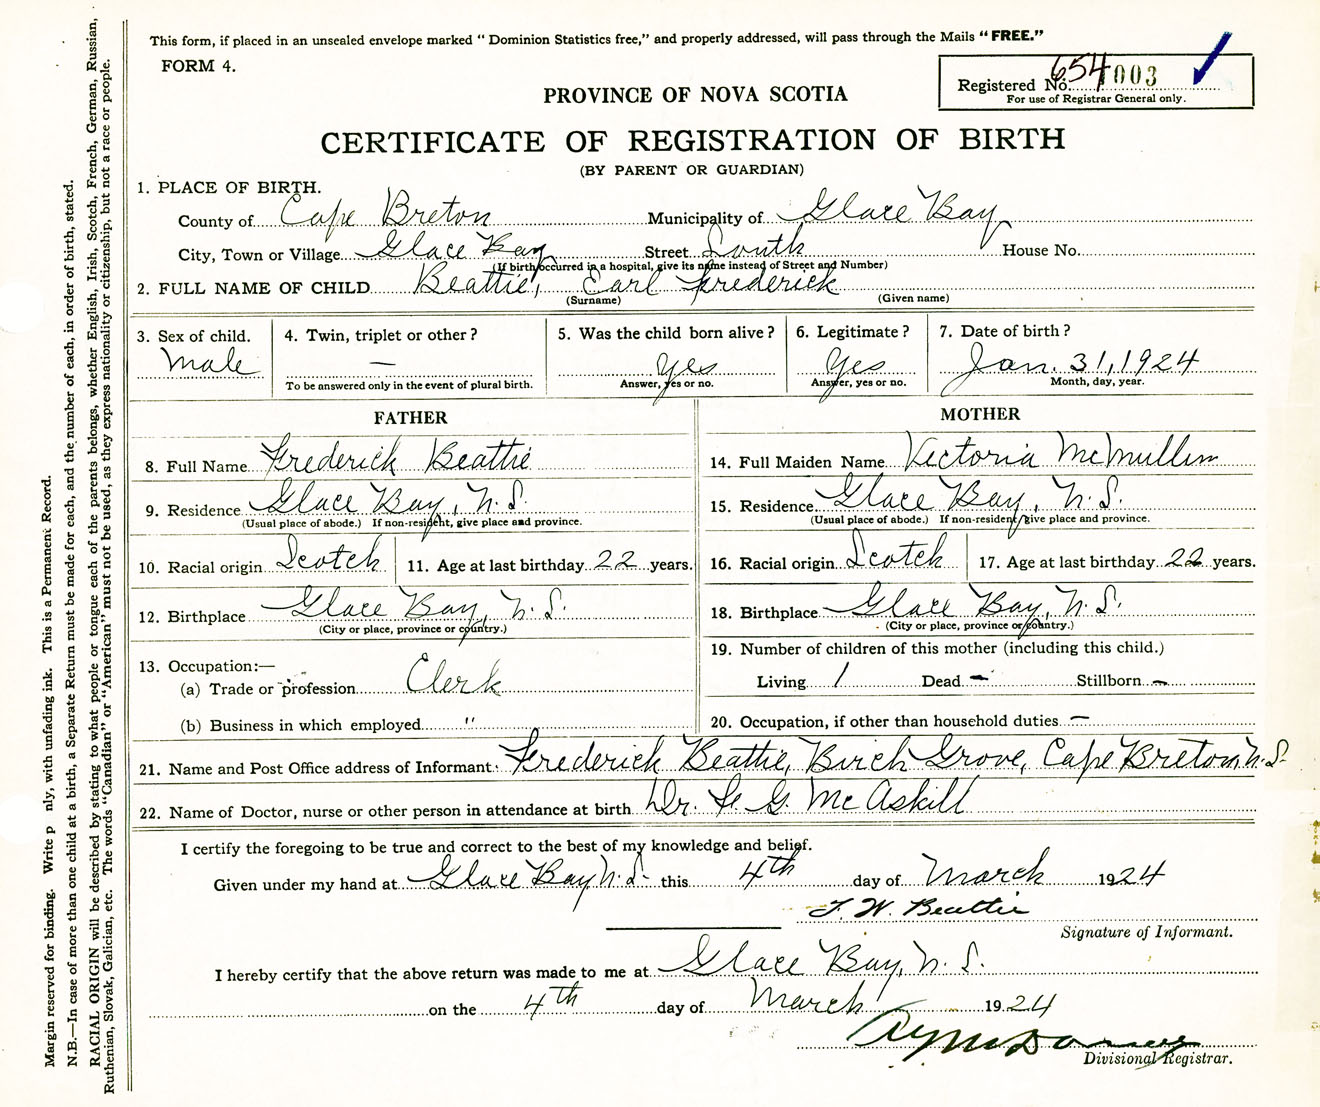 This form, if placed in an unsealed envelope marked “ Dominion Statistics free,” and properly addressed, will pass through the Mails “ FREE.”
FORM 4.
Registered No. 654 003
For use of Registrar General only.
PROVINCE OF NOVA SCOTIA
CERTIFICATE OF REGISTRATION OF BIRTH
(BY PARENT OR GUARDIAN)
1. PLACE OF BIRTH.
County of Cape Breton Municipality of Glace Bay
City, Town or Village Glace Bay Street South House No.
(If birth occurred in a hospital, give its name instead of Street and Number)
2. FULL NAME OF CHILD Beattie, Earl Frederick
(Surname) (Given name)
3. Sex of child. 4. Twin, triplet or other ? 5. Was the child born alive ? 6. Legitimate ? 7. Date of birth ?
Male — Yes Yes Jan. 31, 1924
To be answered only in the event of plural birth. Answer, yes or no. Answer, yes or no. Month, day, year.
FATHER
8. Full Name Frederick Beattie
9. Residence Glace Bay, N. S.
(Usual place of abode.) If non-resident, give place and province.
10. Racial origin Scotch 11. Age at last birthday 22 years.
12. Birthplace Glace Bay, N. S.
(City or place, province or country.)
13. Occupation:—
(a) Trade or profession Clerk
(b) Business in which employed "
MOTHER
14. Full Maiden Name Victoria McMullin
15. Residence Glace Bay, N. S.
(Usual place of abode.) If non-resident, give place and province.
16. Racial origin Scotch 17. Age at last birthday 22 years.
18. Birthplace Glace Bay, N. S.
(City or place, province or country.)
19. Number of children of this mother (including this child.)
Living 1 Dead — Stillborn —
20. Occupation, if other than household duties —
21. Name and Post Office address of Informant Frederick Beattie, Birch Grove, Cape Breton, N. S.
22. Name of Doctor, nurse or other person in attendance at birth Dr. G. McAskill
I certify the foregoing to be true and correct to the best of my knowledge and belief.
Given under my hand at Glace Bay N. S. this 4th day of March 1924
F. W. Beattie
Signature of Informant.
I hereby certify that the above return was made to me at Glace Bay, N. S.
on the 4th day of March 1924
Divisional Registrar.
Margin reserved for binding. Write p nly, with unfading ink. This is a Permanent Record.
N.B.—In case of more than one child at a birth, a Separate Return must be made for each, and the number of each, in order of birth, stated.
RACIAL ORIGIN will be described by stating to what people or tongue each of the parents belongs, whether English, Irish, Scotch, French, German, Russian,
Ruthenian, Slovak, Galician, etc. The words “Canadian” or “American” must not be used, as they express nationality or citizenship, but not a race or people.